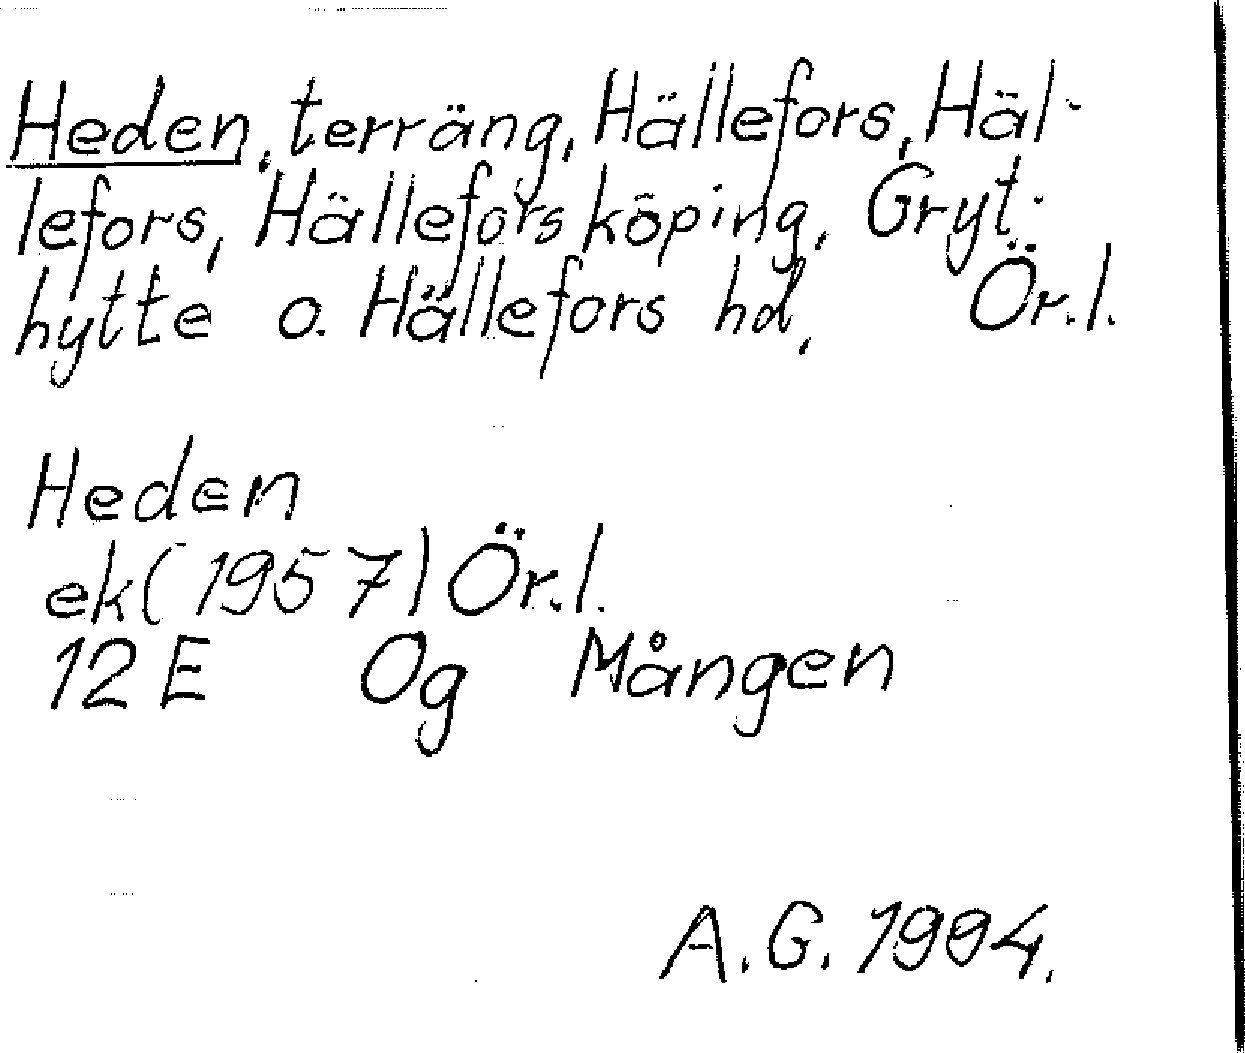 Heden, terräng, Hällefors, Häl-
lefors, Hällefors köping, Gryt-
hytte o. Hällefors hd, Ör.l.
Heden
ek(1957) Ör.l.
12E 0g Mången
A.G. 1994.